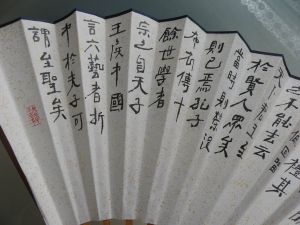 不能去云
於賢人眾矣
當時則榮沒
則已焉孔子
布衣傳十
餘世學者
宗之自天子
王侯中國
言六藝者折
中於夫子可
謂至聖矣